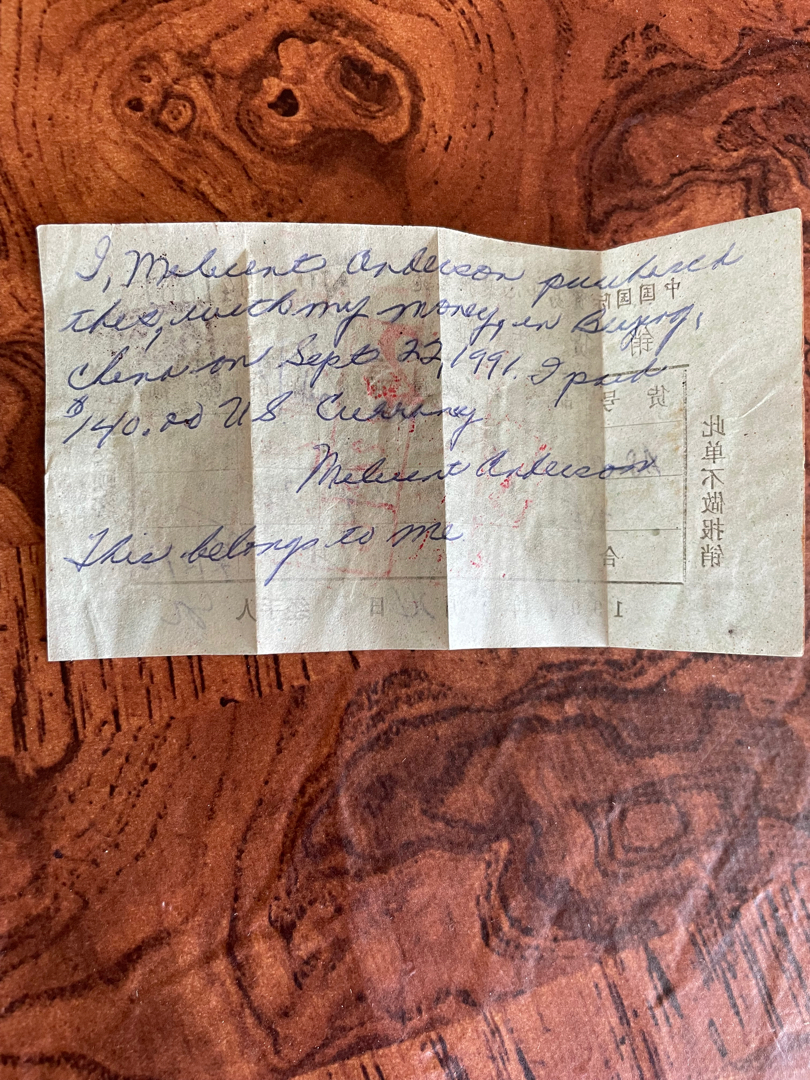 I, Melvent Anderson purchased
this, with my money, in Beijing,
China on Sept 22, 1991. I paid
$140.00 US Currency
Melvent Anderson
This belongs to me
中国国际
销
货号
合
此单不做报销
1 日 人